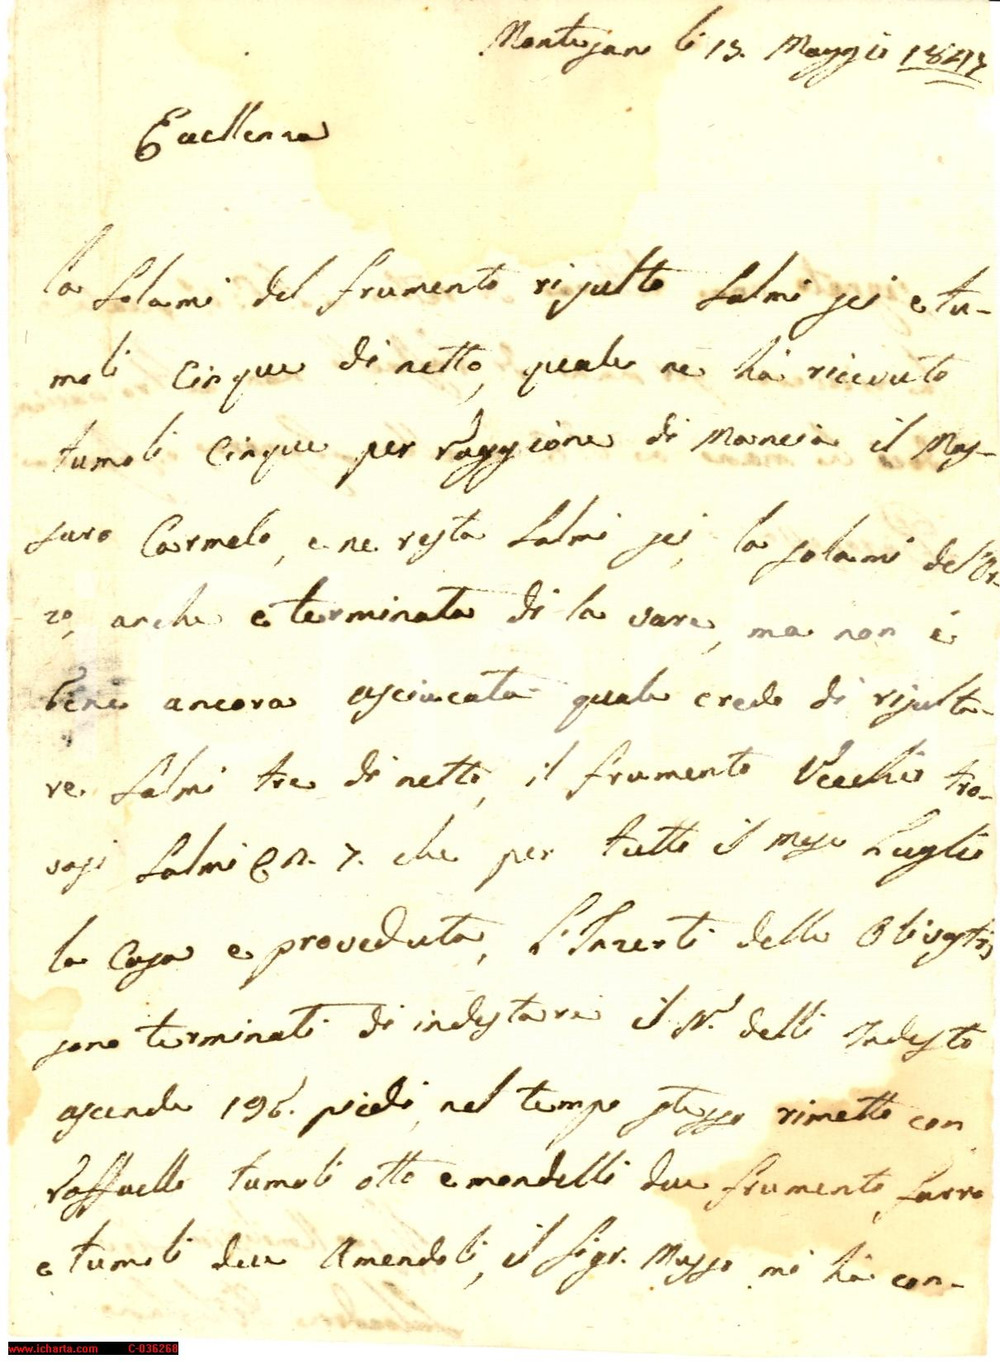 li 13. Maggio 1847
Eccellenza
la Solami del frumento risulto Salmi sei e tu-
moli Cinque di netto, quale ne ha ricevuto
tumoli Cinque per raggione di Mancia il Mas-
saro Carmelo, e ne resta Salmi sei, la solami del'Or-
zo, anche e terminata di la vare, ma non é
bene ancora asciucata quale credo di risulta-
re Salmi tre di netto, il frumento Vecchio tro-
vasi Salmi 7. che per tutto il mese Luglio
la Casa e proveduta, L'Inzerti delle Olivastri
sono terminati di indestare il N.º delli Indesto
ascende 196. piedi, nel tempo stesso rimetto con
Raffaello tumoli otto e mondelli due frumento, farro
e tumoli due Amendoli, il Sigr. Musso mi ha con-
www.icharta.com C-036268